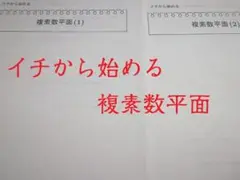 複素数平面(1)
複素数平面(2)
イチから始める
複素数平面